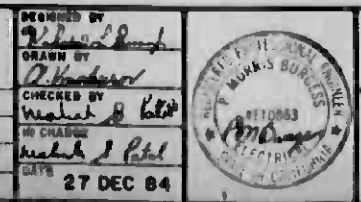 DESIGNED BY
DRAWN BY
CHECKED BY
Mahesh B Patel
IN CHARGE
Mahesh B Patel
DATE
27 DEC 84
REGISTERED PROFESSIONAL ENGINEER
P. MORRIS BURGESS
ELECTRICAL
STATE OF CALIFORNIA